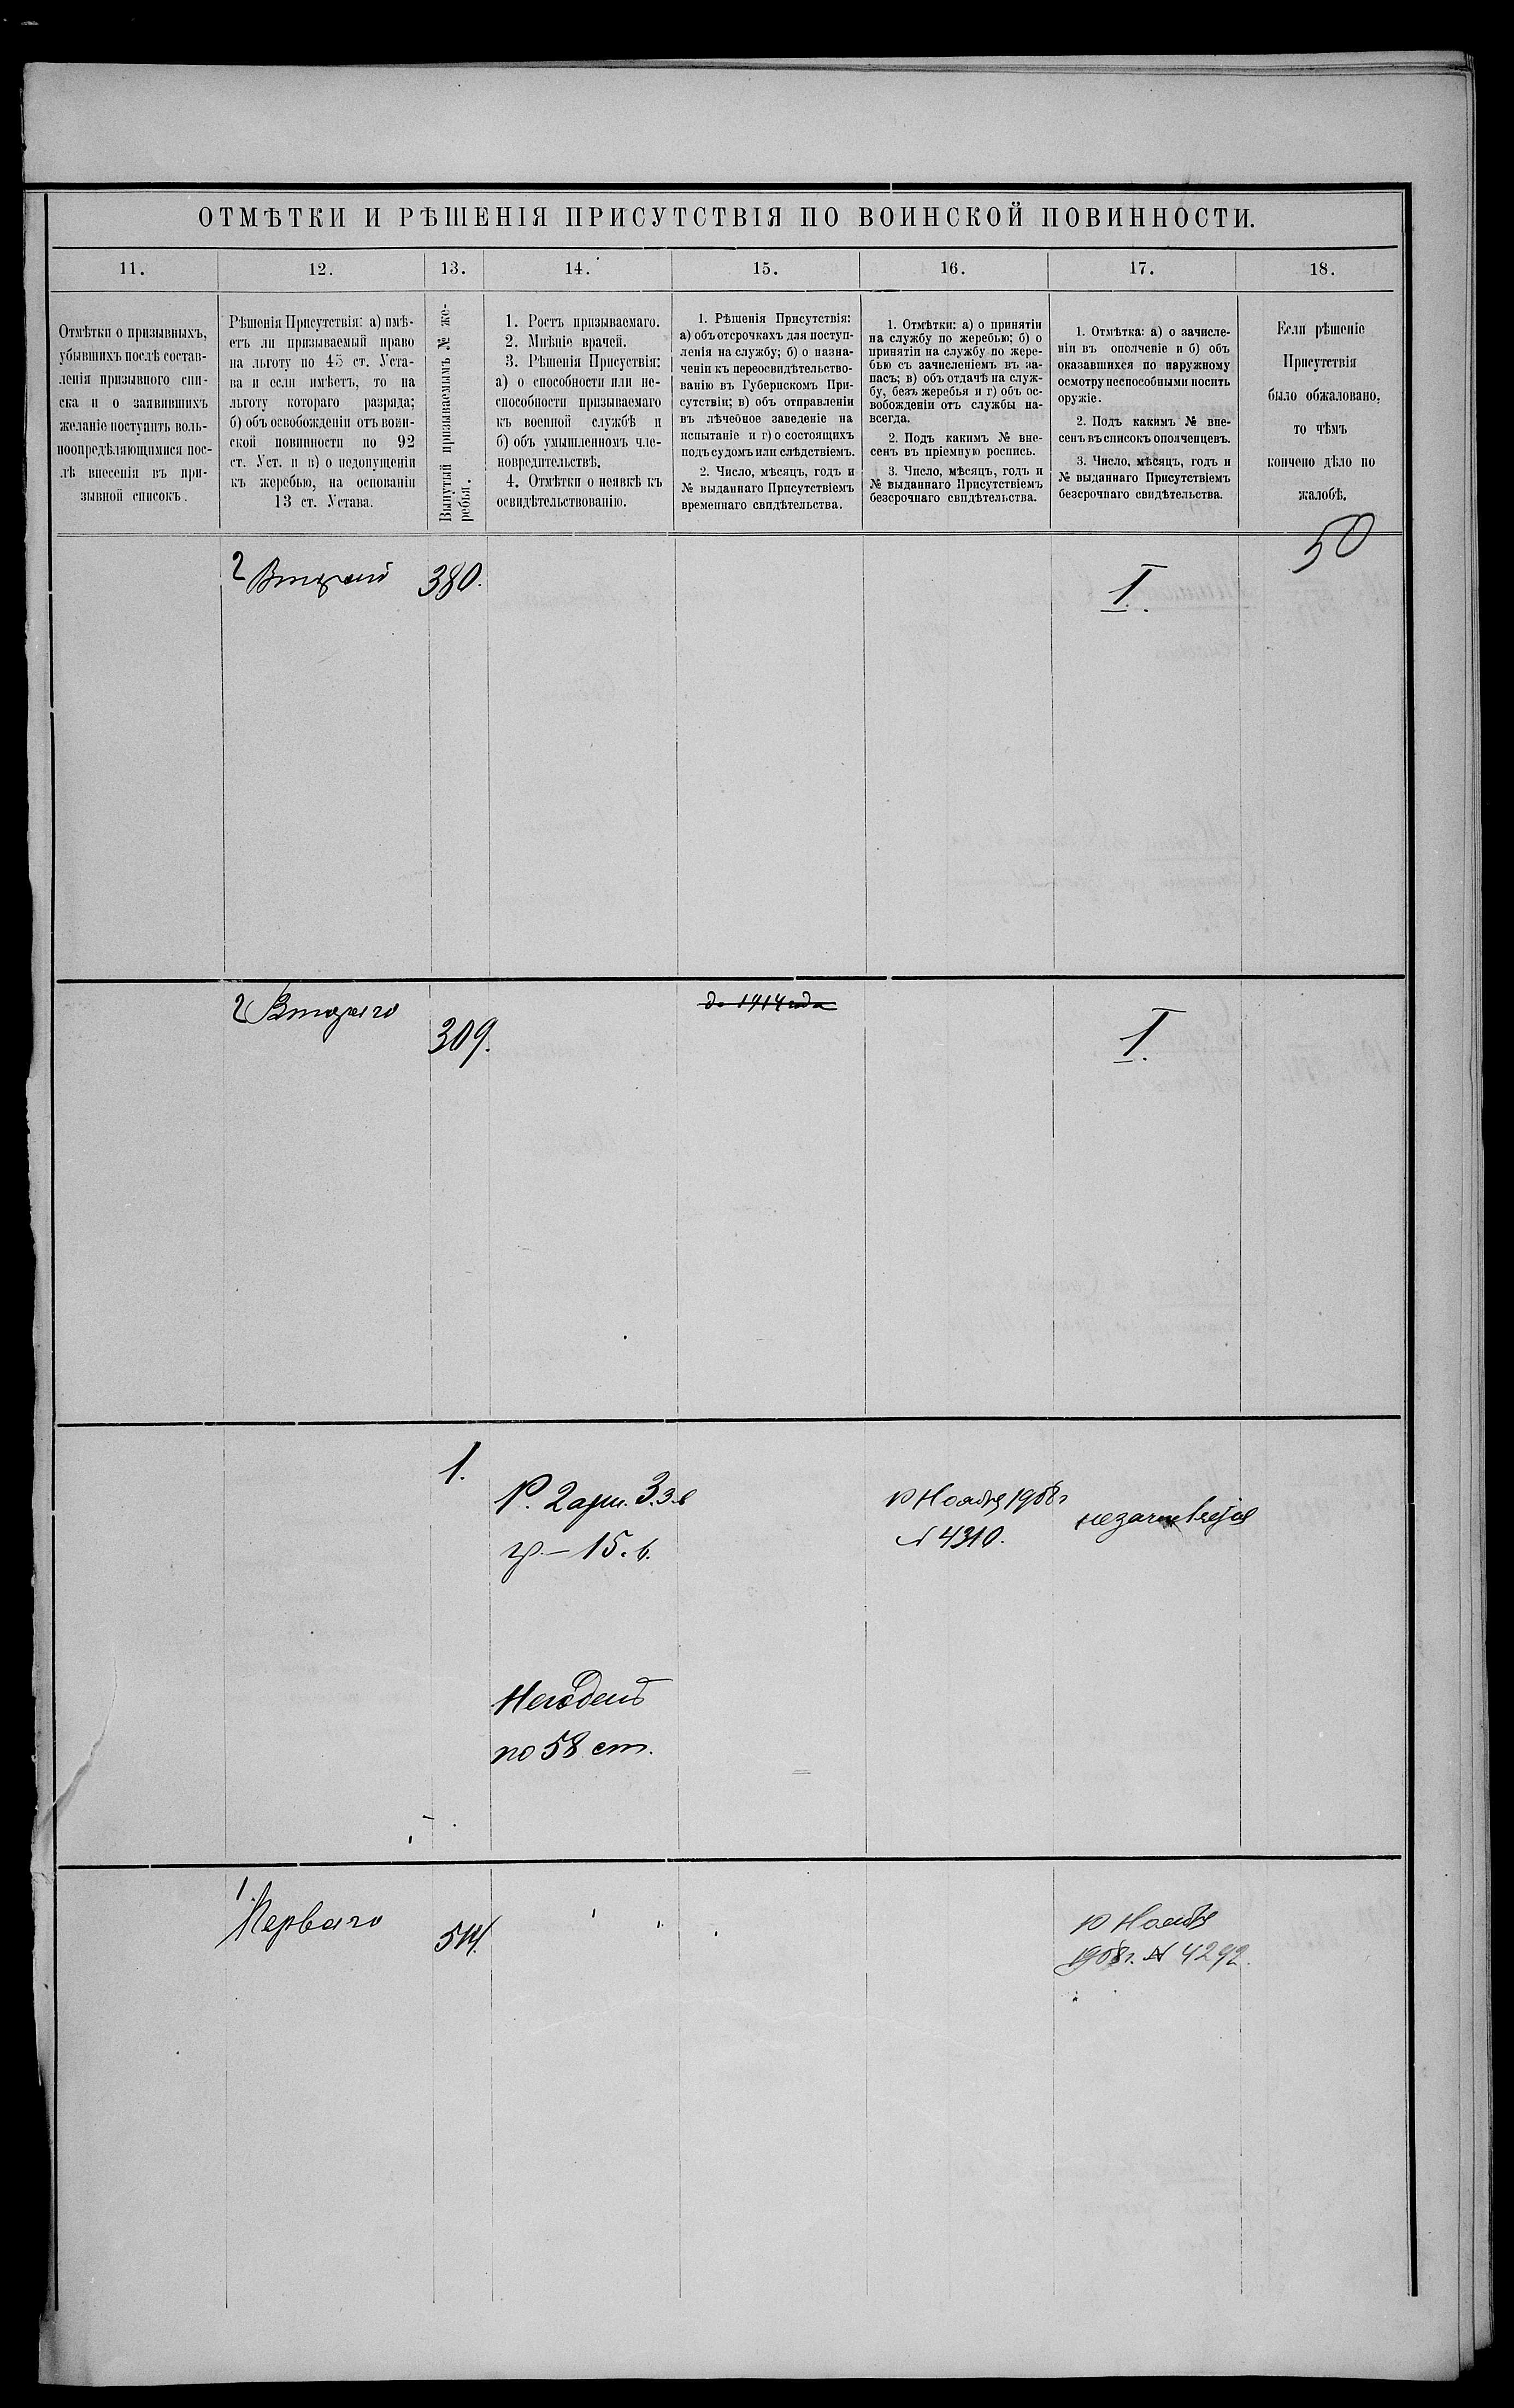 ОТМѢТКИ И РѢШЕНІЯ ПРИСУТСТВІЯ ПО ВОИНСКОЙ ПОВИННОСТИ.
11.
12.
13.
14.
15.
16.
17.
18.
Отмѣтки о призывныхъ,
убывшихъ послѣ состав-
ленія призывного спи-
ска и о заявившихъ
желаніе поступить воль-
ноопредѣляющимися пос-
лѣ внесенія въ при-
зывной списокъ.
Рѣшенія Присутствія: а) имѣ-
етъ ли призываемый право
на льготу по 45 ст. Уста-
ва и если имѣетъ, то на
льготу котораго разряда;
б) объ освобожденіи отъ воин-
ской повинности по 92
ст. Уст. и в) о недопущеніи
къ жеребью, на основаніи
13 ст. Устава.
Вынутый призываемымъ № же-
ребья.
1. Ростъ призываемаго.
2. Мнѣніе врачей.
3. Рѣшенія Присуствія:
а) о способности или не-
способности призываемаго
къ военной службѣ и
б) объ умышленномъ чле-
новредительствѣ.
4. Отмѣтки о неявкѣ къ
освидѣтельствованію.
1. Рѣшенія Присутствія:
а) объ отсрочкахъ для поступ-
ленія на службу; б) о назна-
ченіи къ переосвидѣтельство-
ванію въ Губернскомъ При-
сутствіи; в) объ отправленіи
въ лѣчебное заведеніе на
испытаніе и г) о состоящихъ
подъ судомъ или слѣдствіемъ.
2. Число, мѣсяцъ, годъ и
№ выданнаго Присутствіемъ
временнаго свидѣтельства.
1. Отмѣтки: а) о принятіи
на службу по жеребью; б) о
принятіи на службу по жере-
бью съ зачисленіемъ въ за-
пасъ; в) объ отдачѣ на служ-
бу, безъ жеребья и г) объ ос-
вобожденіи отъ службы на-
всегда.
2. Подъ какимъ № вне-
сенъ въ пріемную роспись.
3. Число, мѣсяцъ, годъ и
№ выданнаго Присутствіемъ
безсрочнаго свидѣтельства.
1. Отмѣтка: а) о зачисле-
ніи въ ополченіе и б) объ
оказавшихся по наружному
осмотру неспособными носить
оружіе.
2. Подъ какимъ № вне-
сенъ въ списокъ ополченцевъ.
3. Число, мѣсяцъ, годъ и
№ выданнаго Присутствіемъ
безсрочнаго свидѣтельства.
Если рѣшеніе
Присутствія
было обжаловано,
то чѣмъ
кончено дѣло по
жалобѣ.
50
2 380.
I.
2 Втораго
309.
до 1914 года
I.
1.
Р. 2 арш. 3.3 в
гр. – 15. в.
Негоденъ
по 58 ст.
10 Ноября 1908 г
№ 4310.
1
Перваго
514.
10 Ноября
1908 г. № 4292.